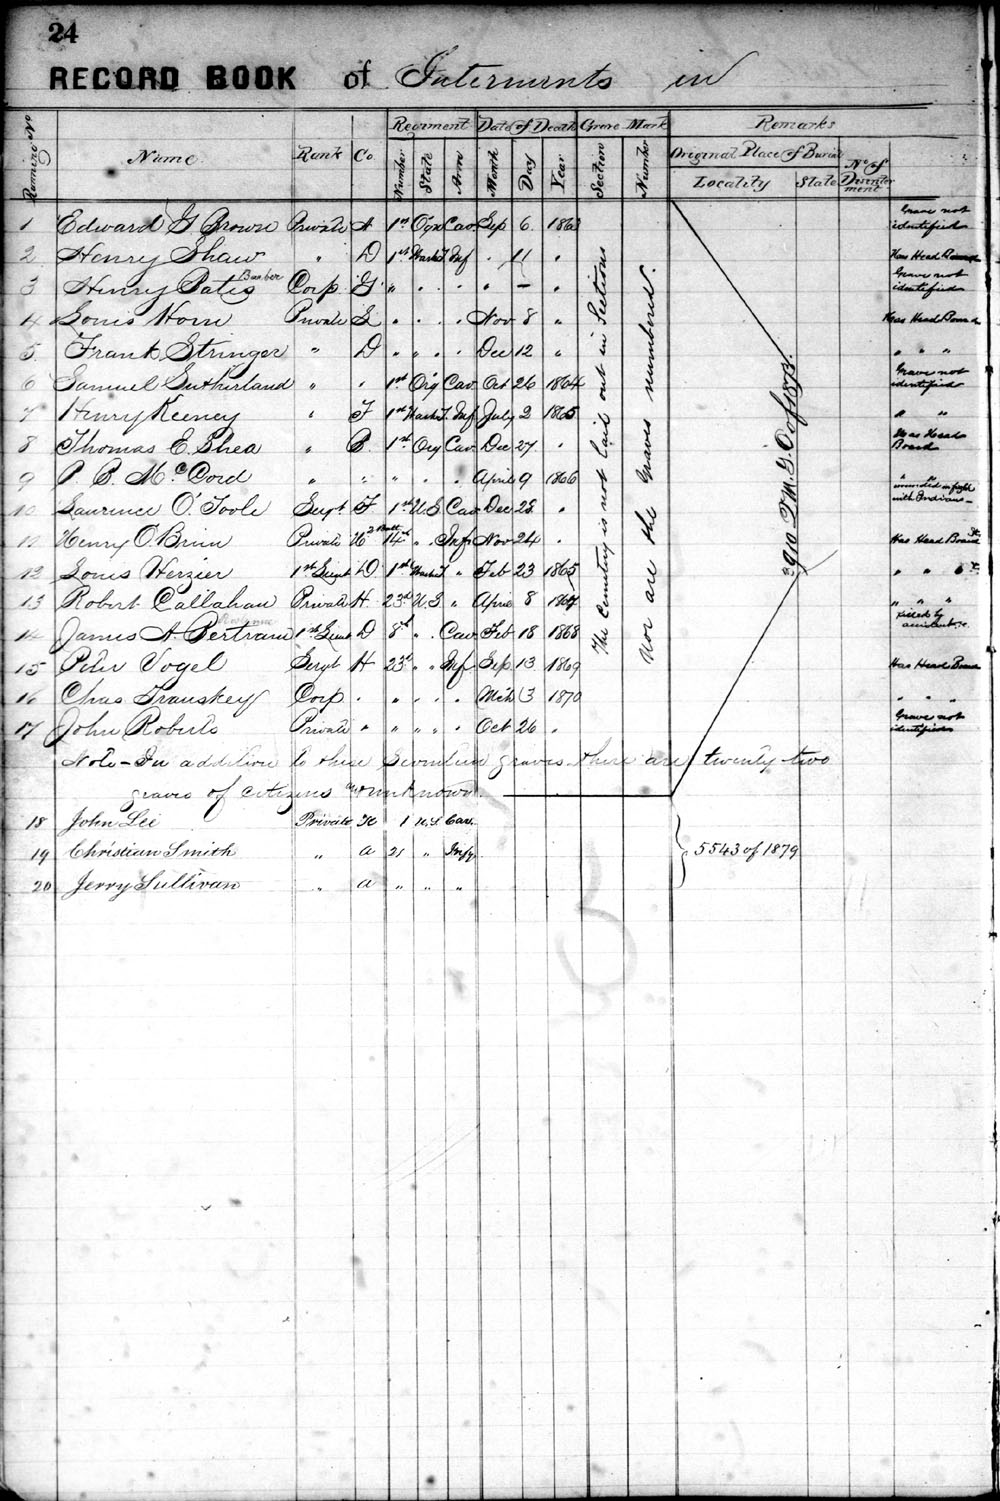 24
RECORD BOOK of Interments in
Running No Name Rank Co. Regiment Date of Death Grave Mark Remarks
Number State Arm Month Day Year Section Number Original Place of Burial No of Disinterment
Locality State
1 Edward G Brown Private A 1st Ogn Cav Sep 6 1863 Grave not identified
2 Henry Shaw " D 1st Wash T. Inf . 11 " Has Head Board
3 Henry Bates Barber Corp. G " . . . " — " Grave not identified
4 Louis Horn Private G " . . . Nov 8 " Has Head Board
5 Frank Stringer " D " " . . Dec 12 " " " "
6 Samuel Sutherland " " 1st Org Cav Oct 26 1864 Grave not identified
7 Henry Keeney " F 1st Wash T. Inf July 2 1865 " "
8 Thomas E. Shea " B 1st Org Cav Dec 27 . Has Head Board
9 P. B. McCord " " " " " " April 9 1866 "
10 Laurence O'Toole Sergt F 1st U.S Cav Dec 23 " wounded in fight with Indians—
11 Henry O.Brien Private 2 Batt 14th " . Inf Nov 24 . Has Head Board
12 Louis Herzier 1st Lieut D 1st Wash T " Feb 23 1865 " "
13 Robert Callahan Private H 23d U.S " April 8 1867 " " "
14 James A. Bertram 1st Lieut D 8th " . Cav Feb 18 1868 Killed by accident
15 Peter Vogel Sergt H 23d " " Inf Sep 13 1869 Has Head Board
16 Chas Transkey Corp . " " . . Mch 3 1870 " " "
17 John Roberts Private " " " " . Oct 26 . Grave not identified
The Cemetery is not laid out in Sections
Nor are the Graves numbered.
390 Q.M.G.O of 1873.
Note — In addition to these Seventeen graves there are twenty two
graves of citizens unknown.
18 John Lee Private K 1 U.S Cav.
19 Christian Smith " A 21 " Infy 5543 of 1879
20 Jerry Sullivan " A " " "